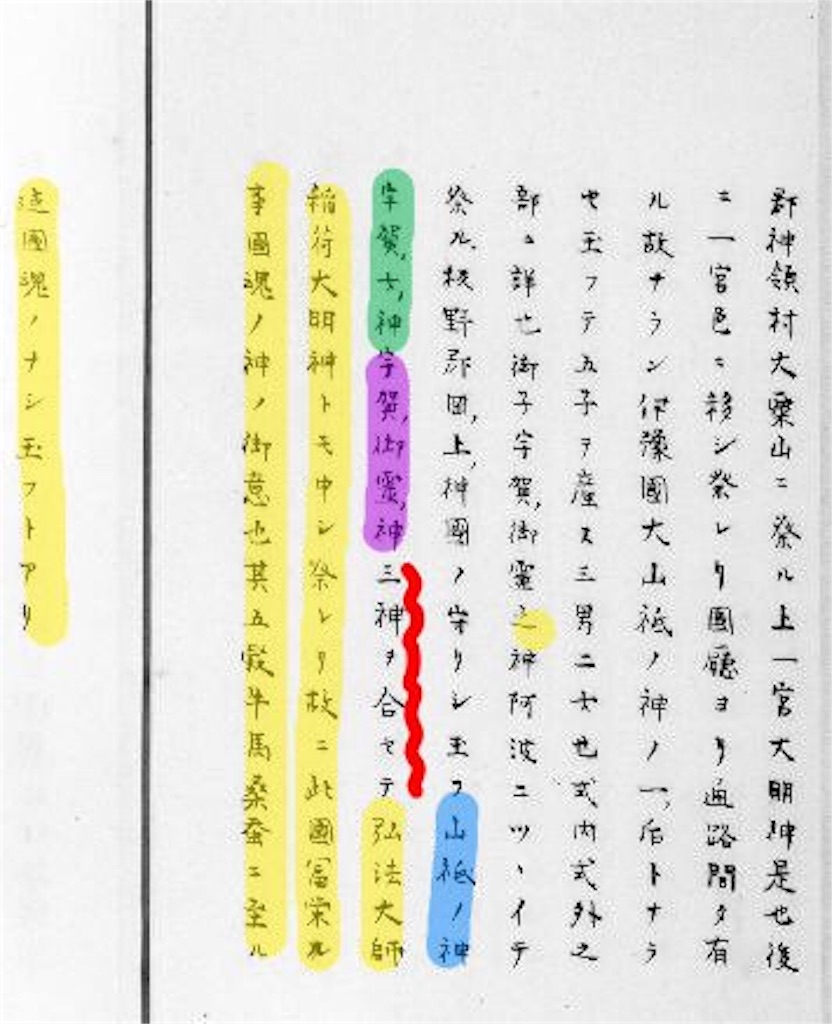 郡神領村大粟山ニ祭ル上一宮大明神是也後
ニ一宮邑ニ移シ祭レリ國廳ヨリ通路間タ有
ル故ナラン伊豫國大山祗ノ神ノ一后トナラ
セ玉フテ五子ヲ産ス三男二女也式内式外之
部ニ詳也御子宇賀御靈之神阿波ニツヽイテ
祭ル板野郡岡上神國ノ守リシ玉フ山祗ノ神
宇賀女神宇賀御靈神三神ヲ合セテ弘法大師
稲荷大明神トモ申シ祭レリ故ニ此國冨栄ル
事國魂ノ神ノ御意也其五穀牛馬桑蚕ニ至ル
迠國魂ノナシ玉フトアリ